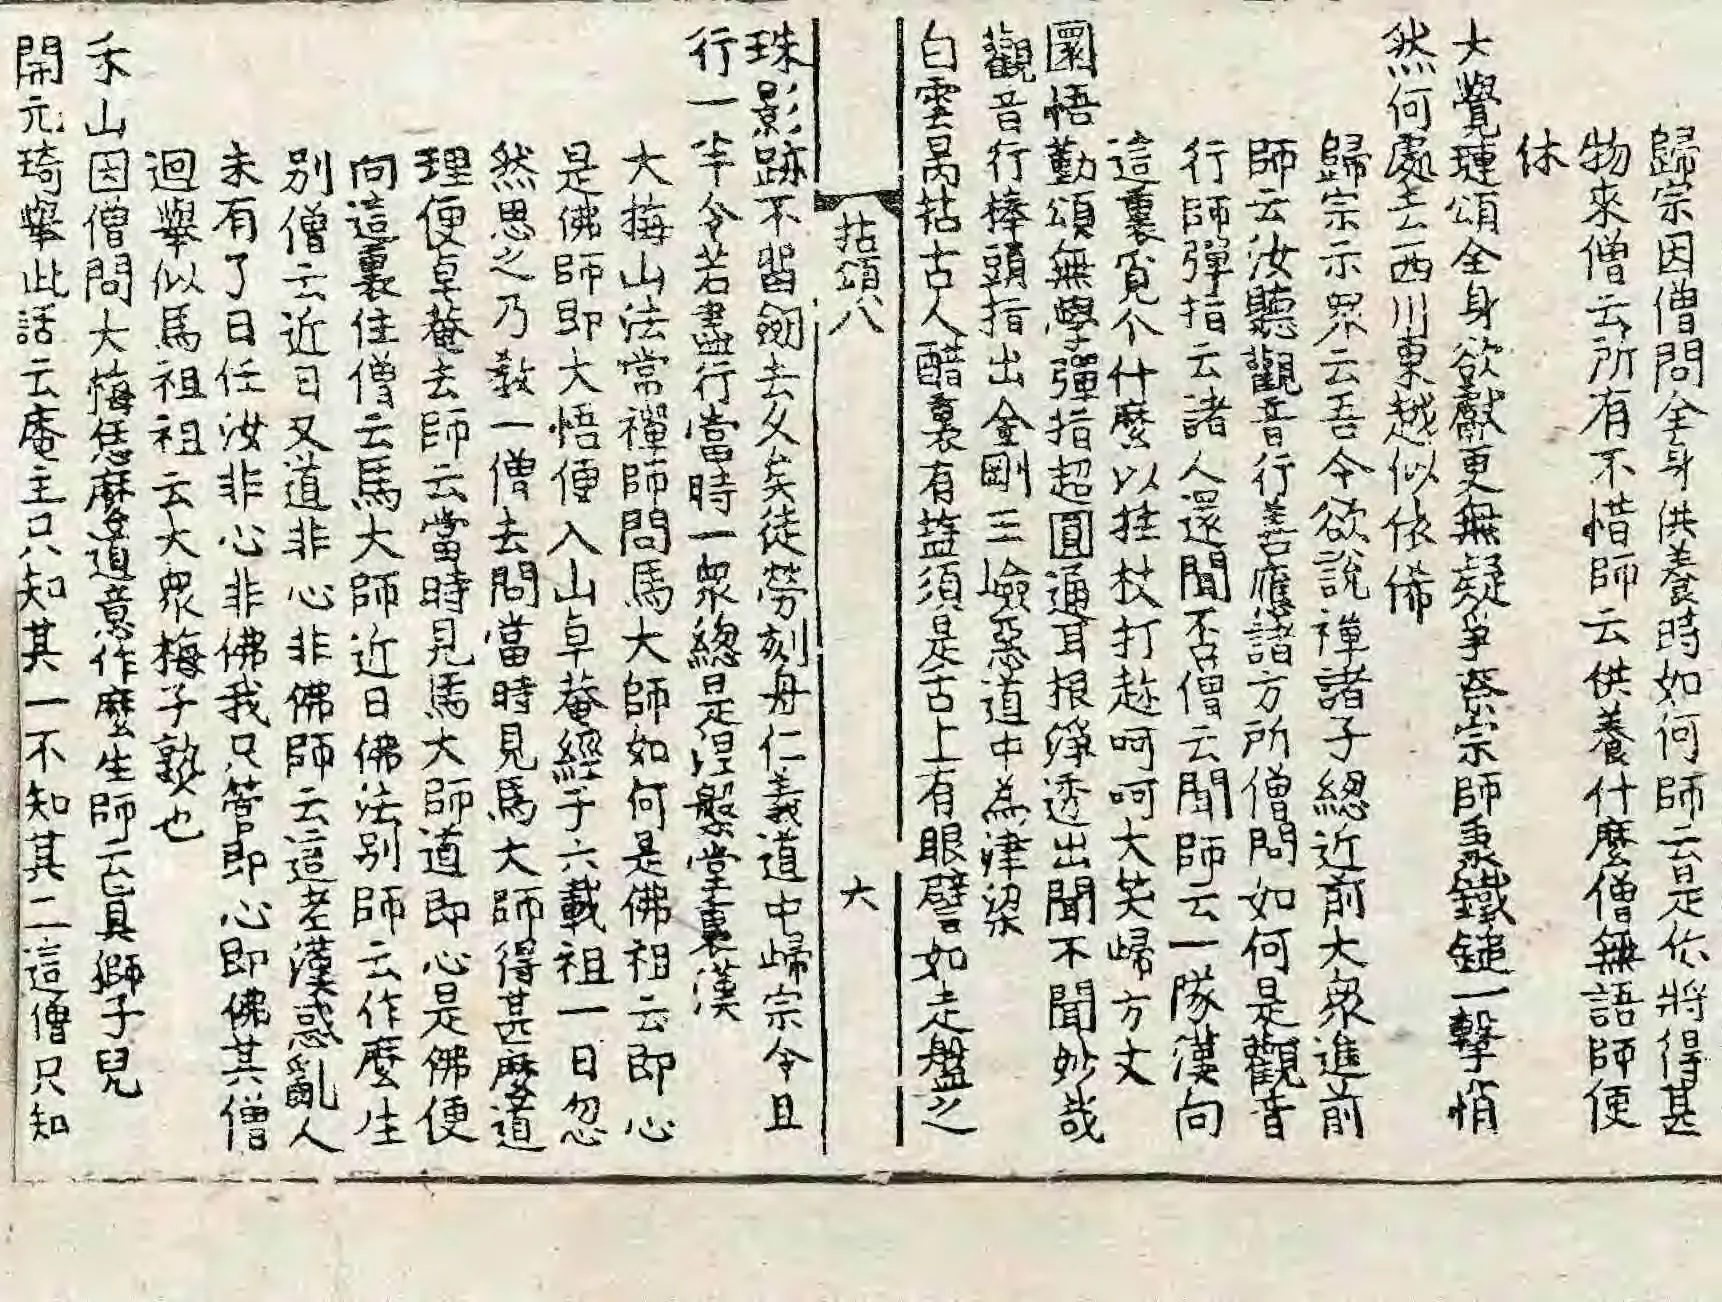 歸宗因僧問全身供養時如何師云是你將得甚
物來僧云所有不惜師云供養什麼僧無語師便
休
大覺璉頌全身欲獻更無疑爭柰宗師秉鐵鎚一擊悄
然何處去西川東越似依俙
歸宗示眾云吾今欲說禪諸子總近前大眾進前
師云汝聽觀音行善應諸方所僧問如何是觀音
行師彈指云諸人還聞否僧云聞師云一隊漢向
這裏覓个什麼以拄杖打趂呵呵大笑歸方丈
圜悟勤頌無學彈指超圓通耳根淨透出聞不聞妙哉
觀音行棒頭指出金剛王嶮惡道中為津梁
白雲昺拈古人醋裏有鹽須是舌上有眼譬如走盤之
拈頌八
六
珠影跡不留劒去久矣徒勞刻舟仁義道中歸宗令且
行一半令若盡行當時一眾緫是涅槃堂裏漢
大梅山法常禪師問馬大師如何是佛祖云即心
是佛師即大悟便入山卓菴經于六載祖一日忽
然思之乃教一僧去問當時見馬大師得甚麼道
理便卓菴去師云當時見馬大師道即心是佛便
向這裏住僧云馬大師近日佛法別師云作麼生
別僧云近日又道非心非佛師云這老漢惑亂人
未有了日任汝非心非佛我只管即心即佛其僧
迴舉似馬祖祖云大眾梅子熟也
禾山因僧問大梅恁麼道意作麼生師云真獅子兒
開元琦舉此話云庵主只知其一不知其二這僧只知